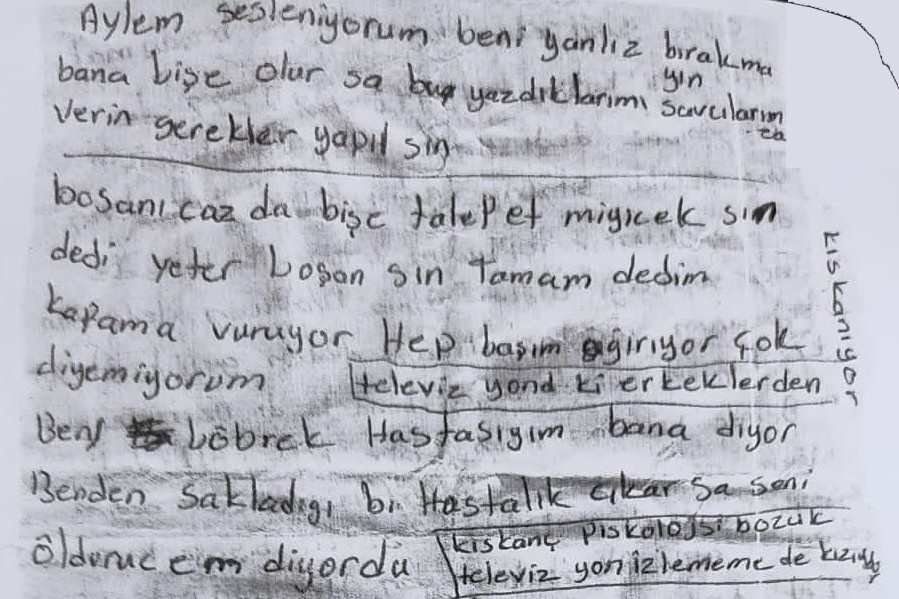 Aylem sesleniyorum beni yanlız bırakma
yın
bana bişe olur sa bu yazdıklarımı savcılarım
za
verin gerekler yapıl sın
bosanıcaz da bişe talep et miyicek sın
dedi yeter boşan sin Tamam dedim
kafama vuruyor Hep başım ağırıyor çok
diyemiyorum televiz yond ki erkeklerden
kıskanıyor
Ben böbrek Hastasıyım bana diyor
Benden sakladıgı bi Hastalık çıkar sa seni
öldürüc em diyordu kıskanç piskolojsi bozuk
televiz yon izlememe de kızıyor